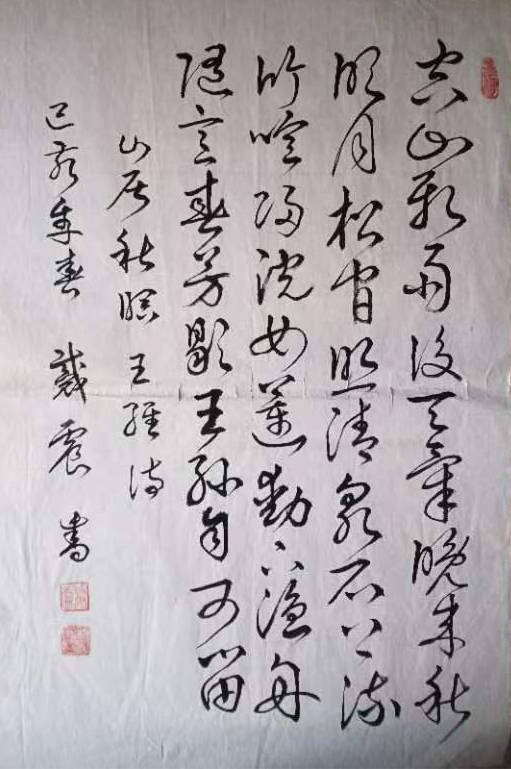 空山新雨後天氣晚來秋
明月松間照清泉石上流
竹喧歸浣女蓮動下漁舟
隨意春芳歇王孫自可留
山居秋暝 王維詩
己亥年春 戴震書